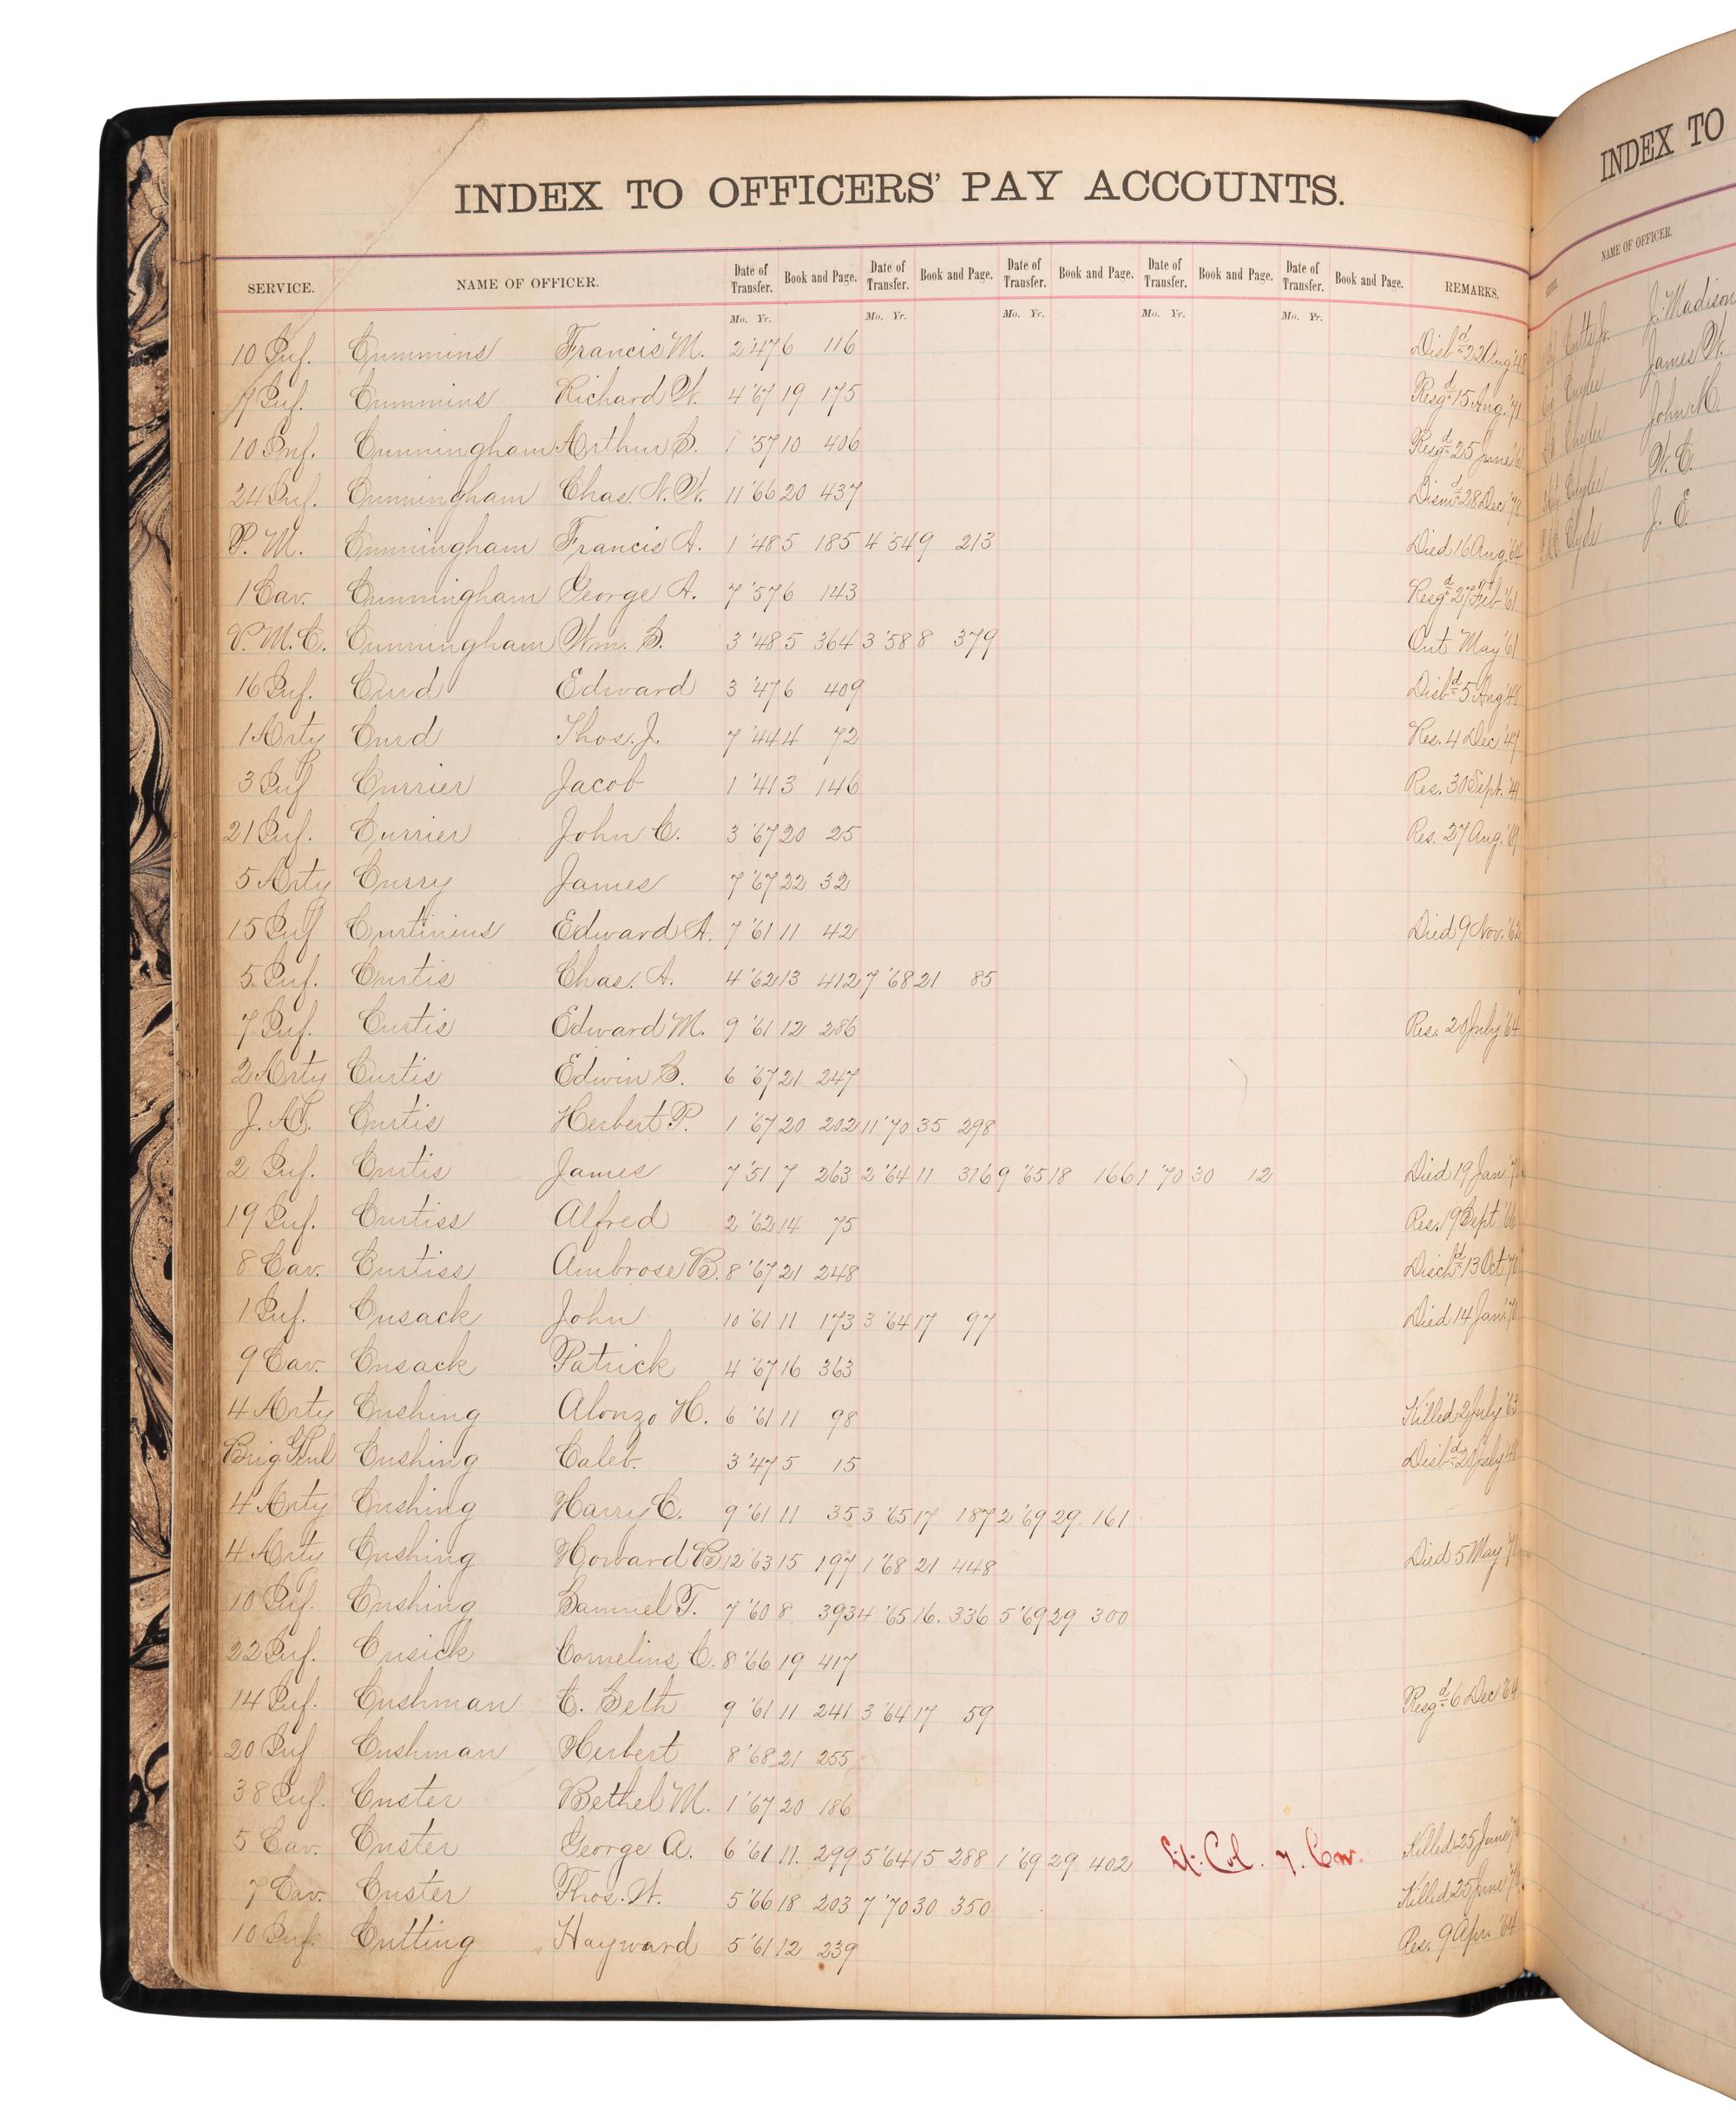 INDEX TO OFFICERS' PAY ACCOUNTS.
SERVICE. NAME OF OFFICER. Date of Transfer. Book and Page. Date of Transfer. Book and Page. Date of Transfer. Book and Page. Date of Transfer. Book and Page. Date of Transfer. Book and Page. REMARKS.
Mo. Yr. Mo. Yr. Mo. Yr. Mo. Yr. Mo. Yr.
10 Inf. Cummins Francis M. 2 '47 6 116 Disbd 22 Aug '48
7 Inf. Cummins Richard W. 4 '67 19 175 Resgd 15 Aug. '71
10 Inf. Cunningham Arthur S. 1 '57 10 406 Resgd 25 June
24 Inf. Cunningham Chas. N. W. 11 '66 20 437 Dismd 28 Dec '78
P. M. Cunningham Francis A. 1 '48 5 185 4 '54 9 213 Died 16 Aug. '64
1 Cav. Cunningham George A. 7 '57 6 143 Resgd 27 Feb '61
V. M. C. Cunningham Wm. S. 3 '48 5 364 3 '58 8 379 Out May '61
16 Inf. Curd Edward 3 '47 6 409 Disbd 5 Aug '48
1 Arty Curd Thos. J. 7 '44 4 72 Res. 4 Dec '47
3 Inf Currier Jacob 1 '41 3 146 Res. 30 Sept. '41
21 Inf. Currier John C. 3 '67 20 25 Res. 27 Aug. '69
5 Arty Curry James 7 '67 22 32
15 Inf Curtinius Edward A. 7 '61 11 42 Died 9 Nov. '62
5 Inf. Curtis Chas. A. 4 '62 13 412 7 '68 21 85
7 Inf. Curtis Edward M. 9 '61 12 286 Res. 20 July '64
2 Arty Curtis Edwin S. 6 '67 21 247
J. A. Curtis Herbert P. 1 '67 20 202 11 '70 35 298
2 Inf. Curtis James 7 '51 7 263 2 '64 11 316 9 '65 18 166 1 '70 30 12 Died 19 Jan
19 Inf. Curtiss Alfred 2 '62 14 75 Res. 19 Sept '66
8 Cav. Curtiss Ambrose B. 8 '67 21 248 Dischd 13 Oct '70
1 Inf. Cusack John 10 '61 11 173 3 '64 17 97 Died 14 Jan
9 Cav. Cusack Patrick 4 '67 16 363
4 Arty Cushing Alonzo H. 6 '61 11 98 Killed 2 July '63
Brig. Genl Cushing Caleb. 3 '47 5 15 Disbd 20 July '48
4 Arty Cushing Harry C. 9 '61 11 35 3 '65 17 187 2 '69 29. 161
4 Arty Cushing Howard B. 12 '63 15 197 1 '68 21 448 Died 5 May '71
10 Inf. Cushing Samuel T. 7 '60 8 393 4 '65 16. 336 5 '69 29 300
22 Inf. Cusick Cornelius C. 8 '66 19 417
14 Inf. Cushman C. Seth 9 '61 11 241 3 '64 17 59 Resgd 6 Dec '64
20 Inf Cushman Herbert 8 '68 21 255
38 Inf. Custer Bethel M. 1 '67 20 186
5 Cav. Custer George A. 6 '61 11. 299 5 '64 15 288 1 '69 29 402 Lt. Col. 7. Cav. Killed 25 June '76
7 Cav. Custer Thos. W. 5 '66 18 203 7 '70 30 350 Killed 25 June '76
10 Inf. Cutting Hayward 5 '61 12 239 Res. 9 Apr. '64
INDEX TO
NAME OF OFFICER.
Cutts Jr. J. Madison
Cuyler James W.
Cuyler John M.
Cuyler W. C.
Clyde J. E.